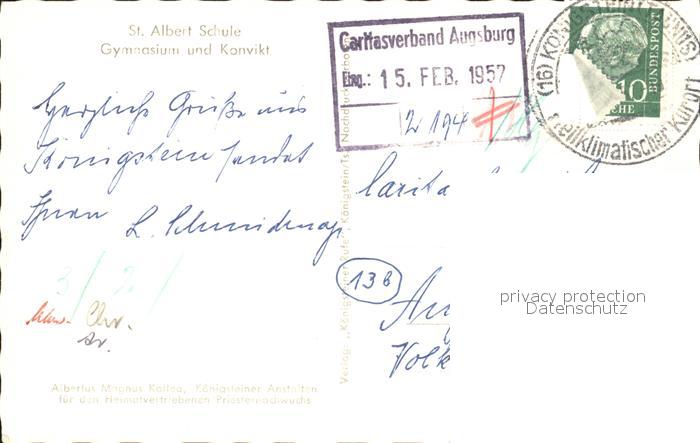 St. Albert Schule
Gymnasium und Konvikt
Herzliche Grüße aus
Königstein sendet
Ihnen L. Schmidt
Caritasverband Augsburg
Eing.: 15. FEB. 1957
2194
10
BUNDESPOST
(16) KÖNIGSTEIN
Heilklimatischer Kurort
Carita
13b
Au
Volk
3/2/
Chr.
privacy protection
Datenschutz
Verlag: „Königsteiner Rufe“, Königstein/Ts.
Albertus Magnus Kolleg, Königsteiner Anstalten
für den Heimatvertriebenen Priesternachwuchs